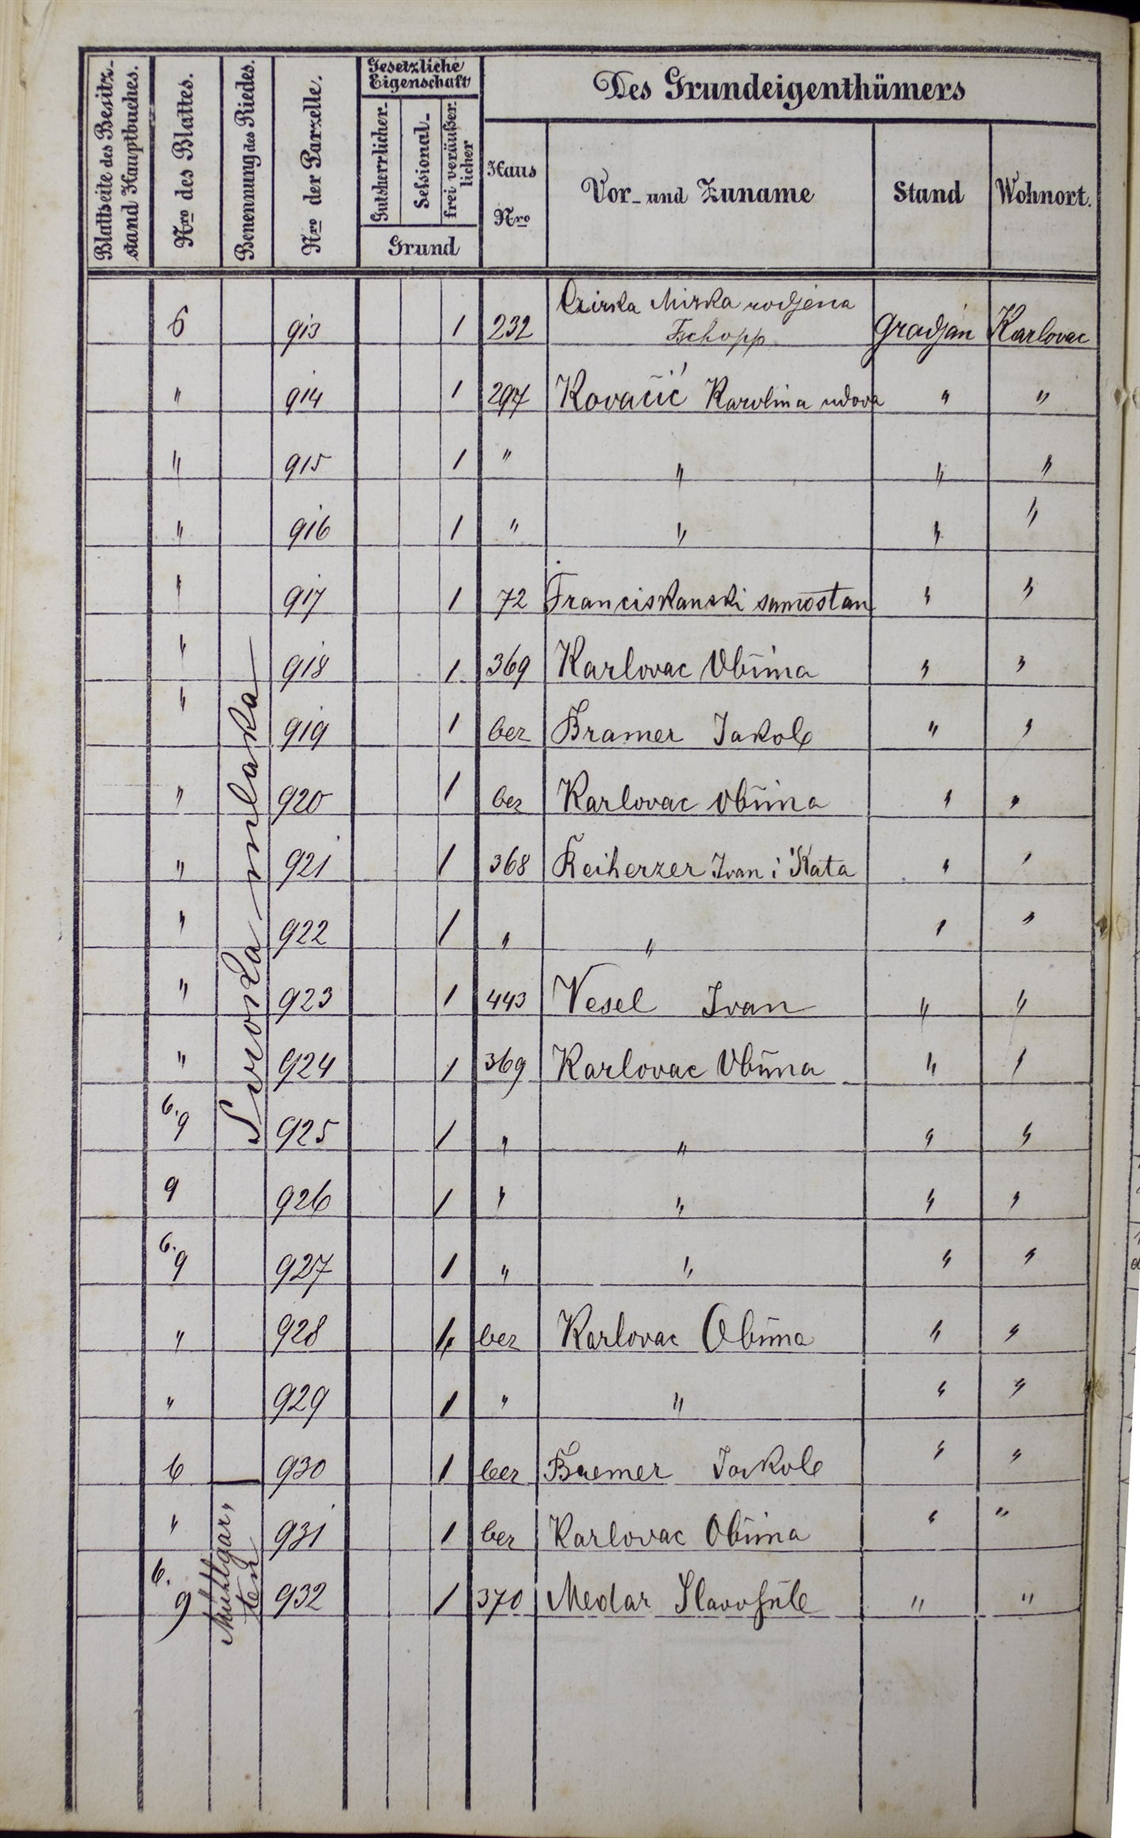 Blattseite des Besitz-
stand Hauptbuches.
Nro des Blattes.
Benennung des Riedes.
Nro der Parzelle.
Gesetzliche
Eigenschaft
Gutsherrlicher-
Selsional-
frei veräußer-
licher
Grund
Des Grundeigenthümers
Haus
Nro
Vor- und Zuname
Stand
Wohnort.
6 913 1 232 Czirka Mirka rodjena
Tschopp gradjan Karlovac
" 914 1 297 Kovačić Karolina udova " "
" 915 1 " " " "
" 916 1 " " " "
" 917 1 72 Franciskanski samostan " "
" 918 1 369 Karlovac Obćina " "
" 919 1 bez Bramer Jakob " "
" 920 1 bez Karlovac obćina " "
" 921 1 368 Reiherzer Ivan i Kata " "
" 922 1 " " " "
" 923 1 443 Vesel Ivan " "
" 924 1 369 Karlovac Obćina " "
6.9 925 1 " " " "
9 926 1 " " " "
6.9 927 1 " " " "
" 928 1 bez Karlovac Obćina " "
" 929 1 " " " "
6 930 1 bez Bremer Jakob " "
" 931 1 bez Karlovac Obćina " "
6.9 932 1 370 Medar " "
mlaka
Mühlgar,
ten